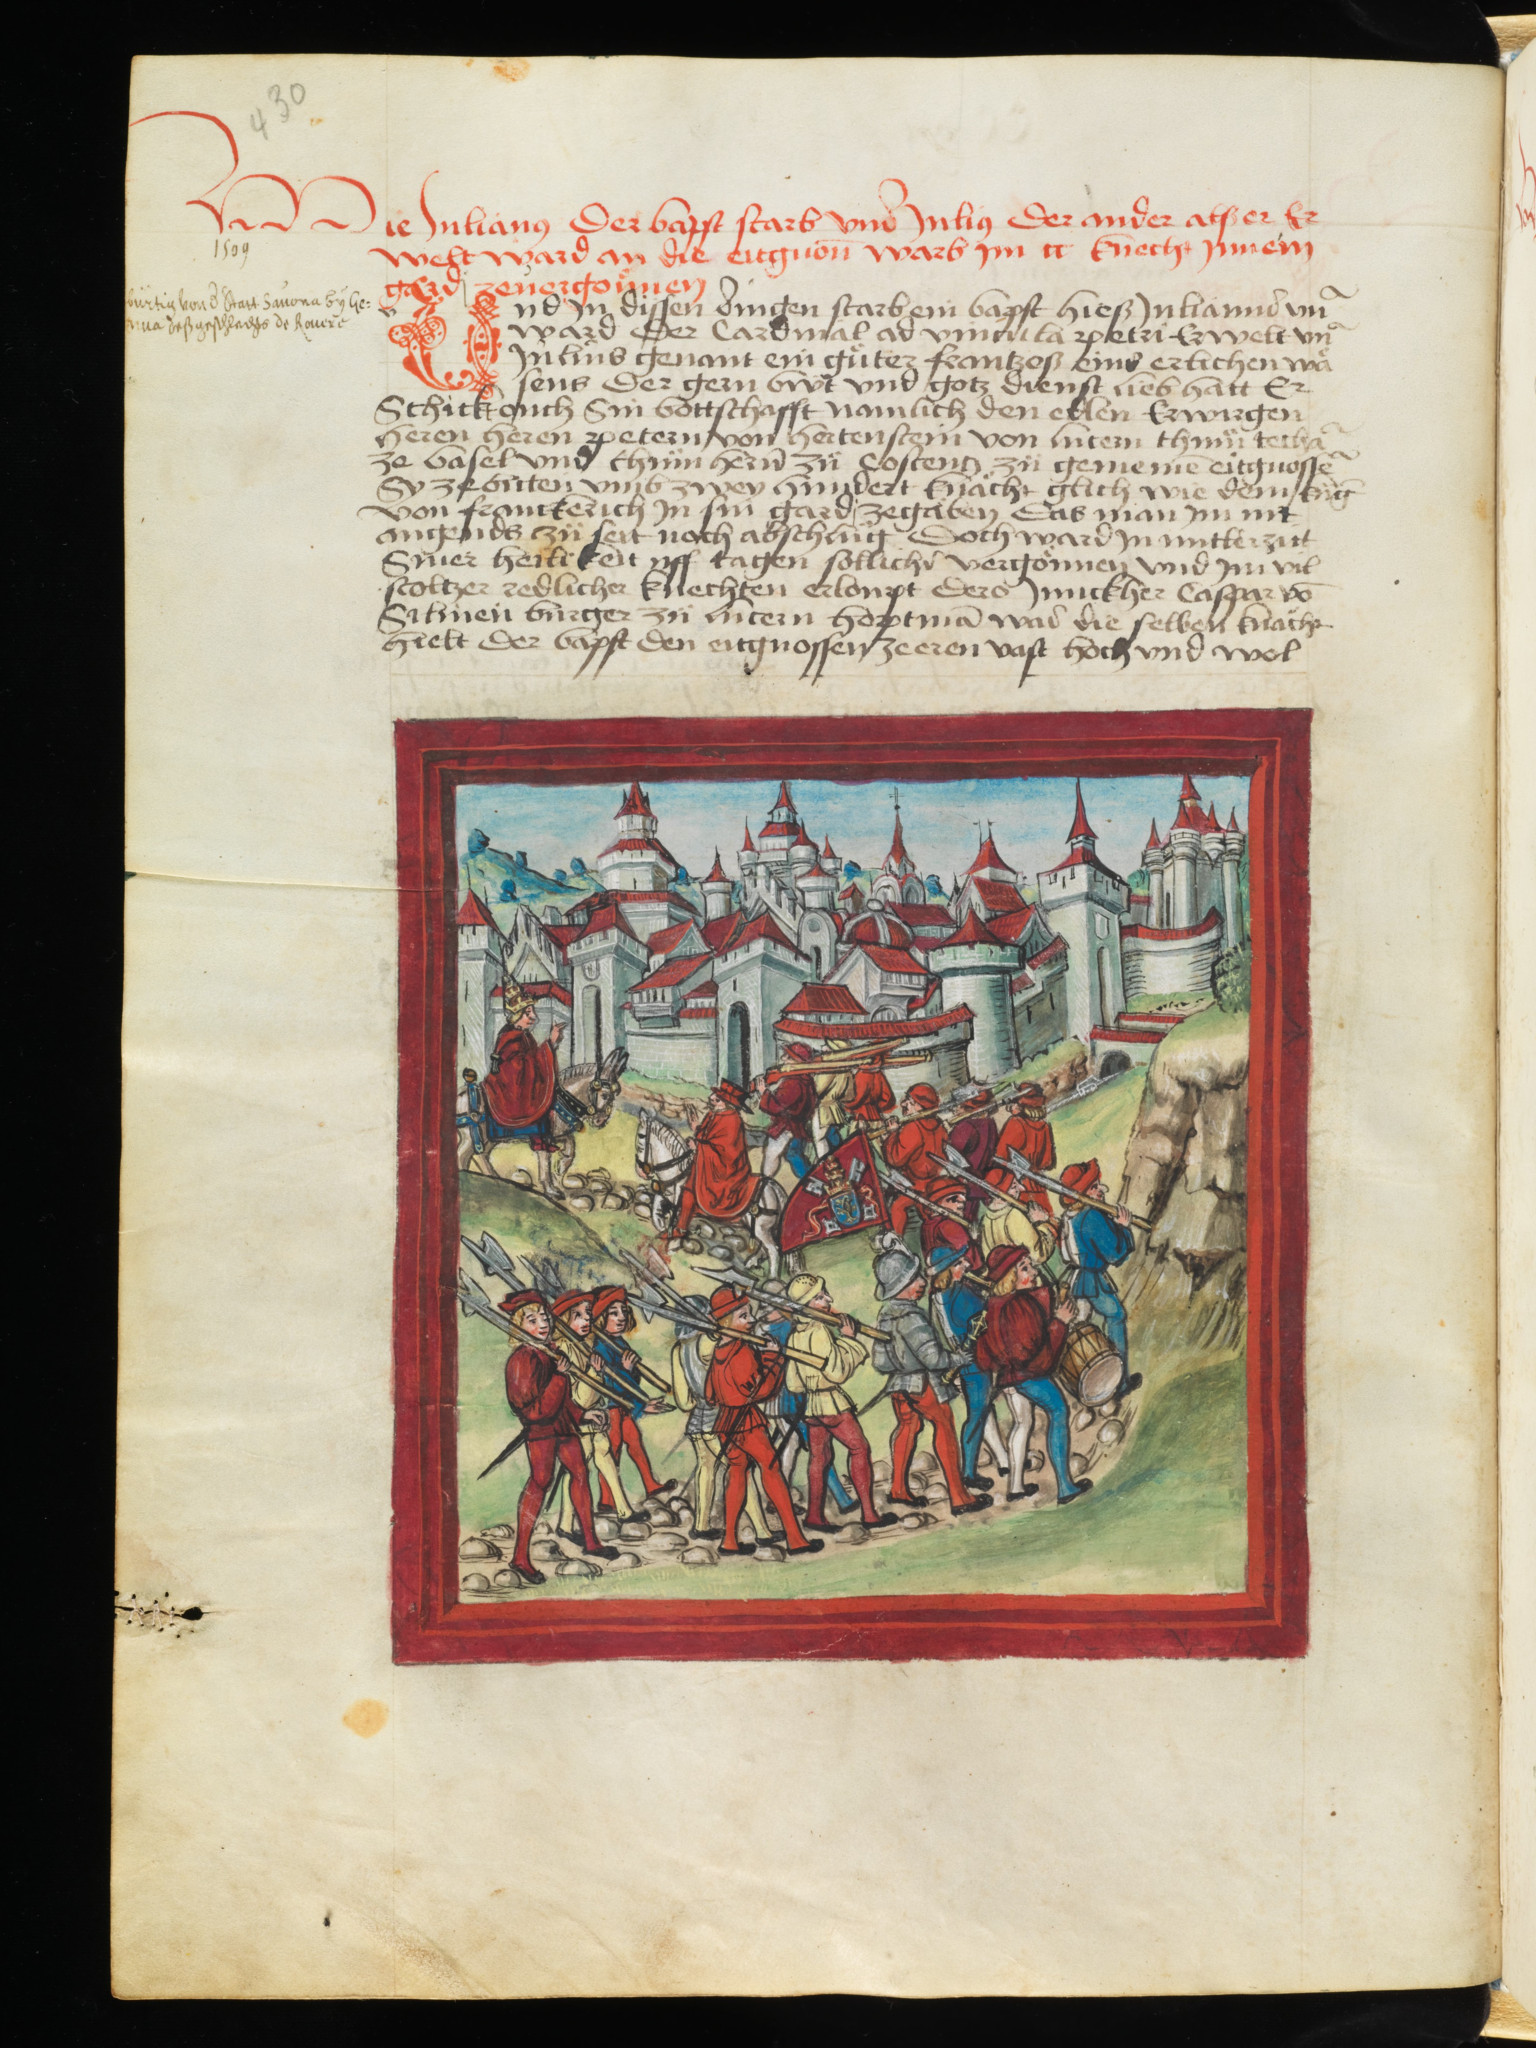 430
Wie Julianus Der bapst starb vnd Julius Der ander alsz er Er
welt ward an die eitgnon warb im ii c knecht Jnnein
gard zeuergoͤnnen
1509
bürtig von d Statt Sauona by Ge-
nua desz geschlechts de Rouere
Vnd Jn dissen dingen starb ein bapst hiesz Julianus vn
ward Der Cardinal ad vincula petri Erwelt vn
Julius genant ein guͦter frantzos eins erlichen waͤ
sens Der gern buwt vnd gotz dienst lieb hatt Er
Schickt ouch Sin bottschafft namlich den edlen Erwirgen
heren heren petern von hertenstein von lucern thuͦm techa
ze basel vnd thuͦm hern zuͦ Costentz zuͦ gemeinen eitgnosse
Sy ze bitten vmb zwey hundert knaͤcht glich wie dem küg
von franckerich Jn sin gard zegaͤben Das man im nit
angends zuͦ seit noch abschluͦg Doch ward Jn mitler zitt
Siner heilikeit vff tagen sollichs vergoͤnnen vnd im vil
stoltzer redlicher knechten erloupt ders Junckher Caspar vo
Silinen burger zuͦ lucern hoptma was die selben knaͤcht
hielt Der bapst den eitgnossen zeeren vast hoch vnd wol